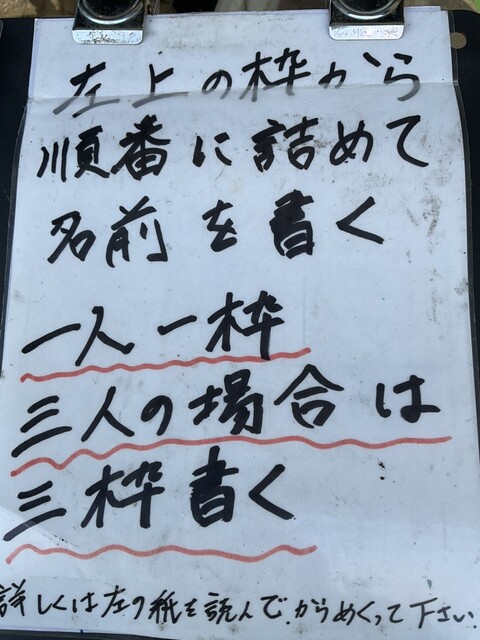 左上の枠から
順番に詰めて
名前を書く
一人一枠
三人の場合は
三枠書く
詳しくは左の紙を読んでからめくって下さい